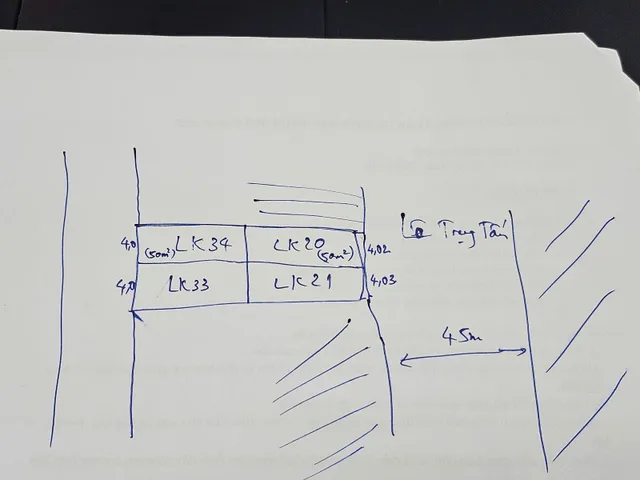 Lê Trọng Tấn
4,0 (50m²) LK34 LK20 (50m²) 4,02
4,0 LK33 LK21 4,03
45m